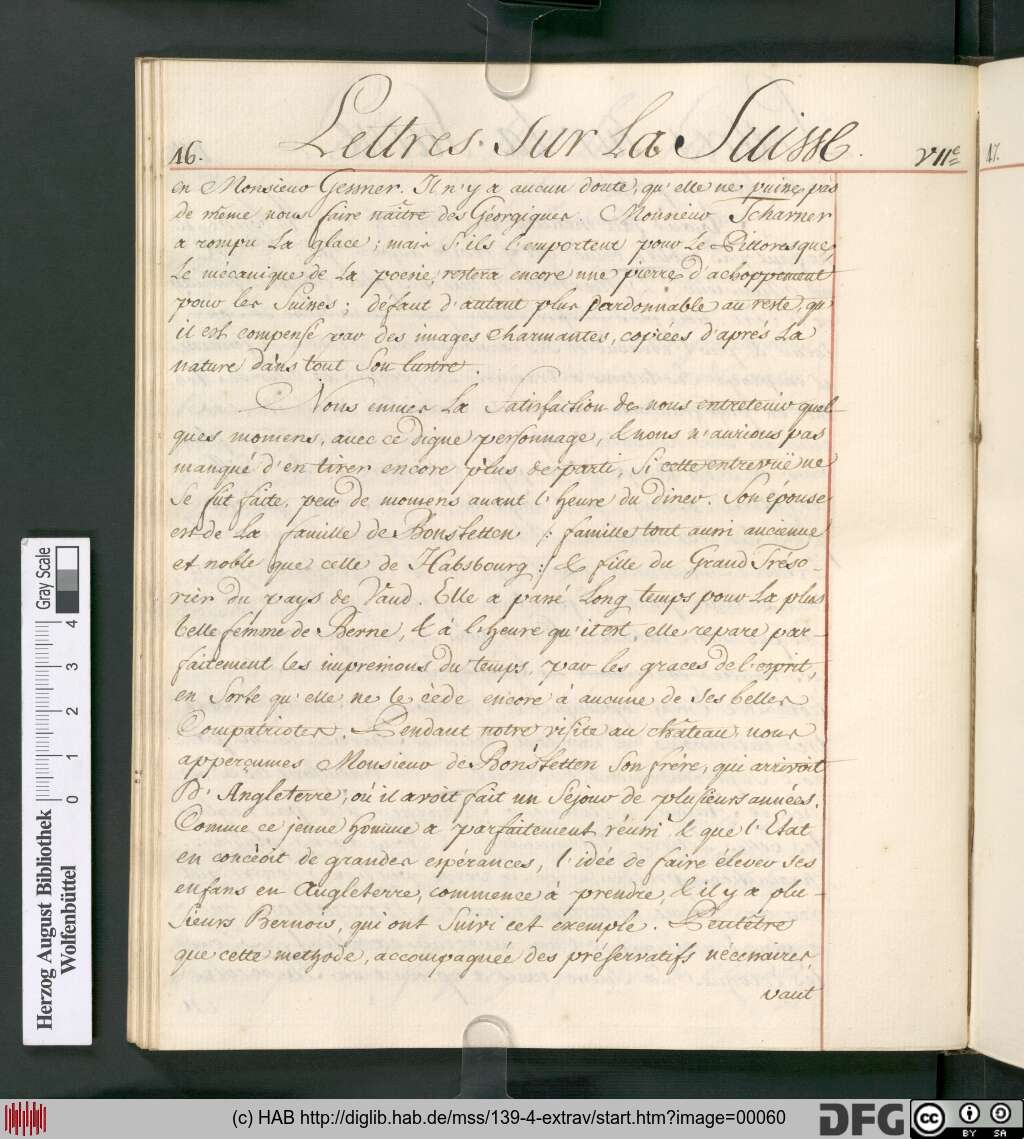 16. Lettres sur La Suisse. VIIe 17.
en Monsieur Gesner. Il n'y a aucun doute, qu'elle ne puisse pas
de même nous faire naître des Géorgiques. Monsieur Tscharner
a rompu La glace; mais S'ils l'emportent pour Le Pittoresque,
Le mécanique de La poesie, restera encore une pierre d'achoppement
pour les Suisses; défaut d'autant plus pardonnable au reste, qu'
il est compensé par des images Charmantes, copiées d'aprés La
nature dans tout Son lustre.
Nous eumes La Satisfaction de nous entretenir quel-
ques momens, avec ce digne personnage, & nous n'aurions pas
manqué d'en tirer encore plus de parti, Si cette entrevuë ne
Se fut faite, peu de momens avant l'heure du diner. Son épouse
est de La famille de Bonstetten /: famille tout aussi ancienne
et noble que celle de Habsbourg :/ & fille du Grand Tréso-
rier du pays de Vaud. Elle a passé Long temps pour La plus
belle femme de Berne, & à l'heure qu'il est, elle repare par-
faitement les impressions du temps, par les graces de l'esprit,
en Sorte qu'elle ne le cède encore à aucune de Ses belles
Compatriotes. Pendant notre visite au château nous
apperçumes Monsieur de Bonstetten Son frére, qui arrivoit
D'Angleterre, où il avoit fait un Séjour de plusieurs années.
Comme ce jeune homme a parfaitement réussi & que l'Etat
en conçoit de grandes espérances, l'idée de faire élever ses
enfans en Angleterre, commence à prendre, & il y a plu-
sieurs Bernois, qui ont Suivi cet exemple. Peutêtre
que cette methode, accompagnée des préservatifs nécessaires,
vaut
Herzog August Bibliothek
Wolfenbüttel
0 1 2 3 4
Gray Scale
(c) HAB http://diglib.hab.de/mss/139-4-extrav/start.htm?image=00060
DFG
cc BY SA